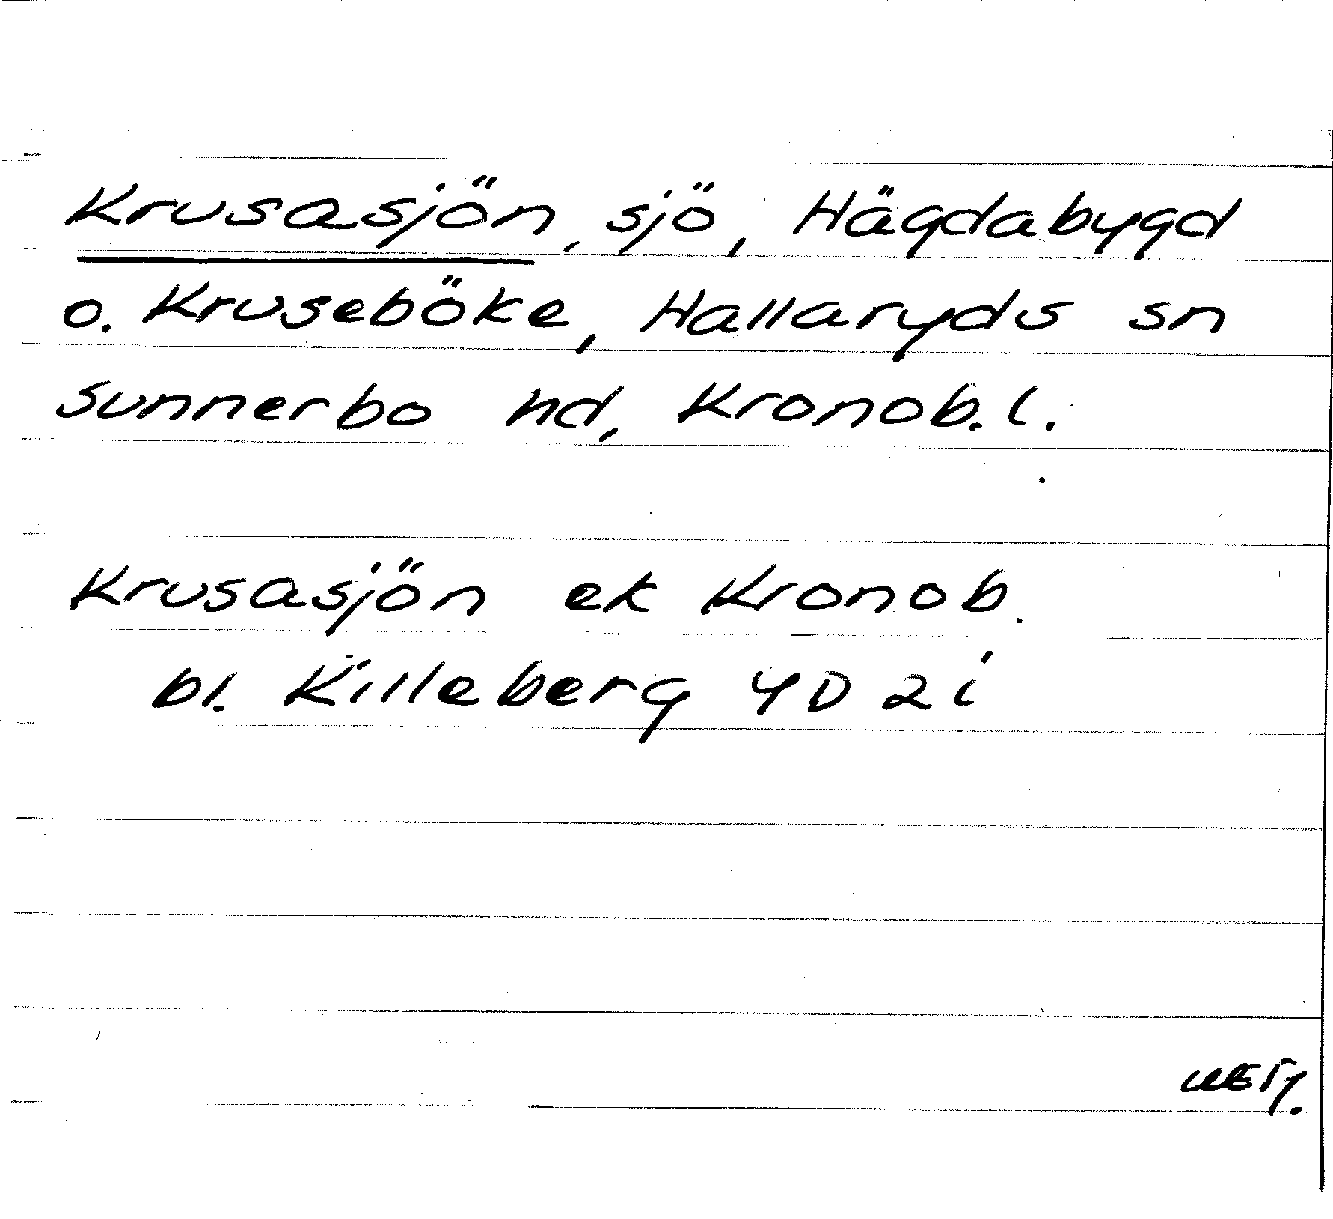 Krusasjön, sjö, Hägdabygd
o. Kruseböke, Hallaryds sn
Sunnerbo hd, Kronob. l.
Krusasjön ek Kronob.
bl. Killeberg 4D 2i